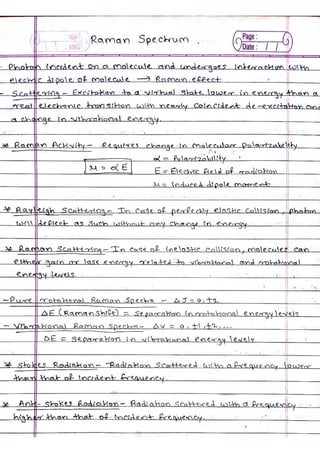 Raman Spectrum.
Page:
Date: / /
- Photon incident on a molecule and undergoes interaction with
electric dipole of molecule → Raman effect
- Scattering - Excitation to a virtual state lower in energy than a
real electronic transition with nearly coincident de-excitation and
a change in vibrational energy.
* Raman Activity - Requires change in molecular polarizability
α = Polarizability
μ = αE
E = Electric field of radiation
μ = Induced dipole moment
* Rayleigh Scattering - In case of perfectly elastic collision, photon
will deflect as such without any change in energy.
* Raman Scattering - In case of inelastic collision, molecules can
either gain or lose energy related to vibrational and rotational
energy levels
- Pure rotational Raman Spectra - ΔJ = 0, ±2
ΔE (Raman Shift) = Separation in rotational energy levels
- Vibrational Raman Spectra - Δv = 0, ±1, ±2....
ΔE = Separation in vibrational energy levels
* Stokes Radiation - Radiation Scattered with a frequency lower
than that of incident frequency.
* Anti-Stokes Radiation - Radiation Scattered with a frequency
higher than that of incident frequency.